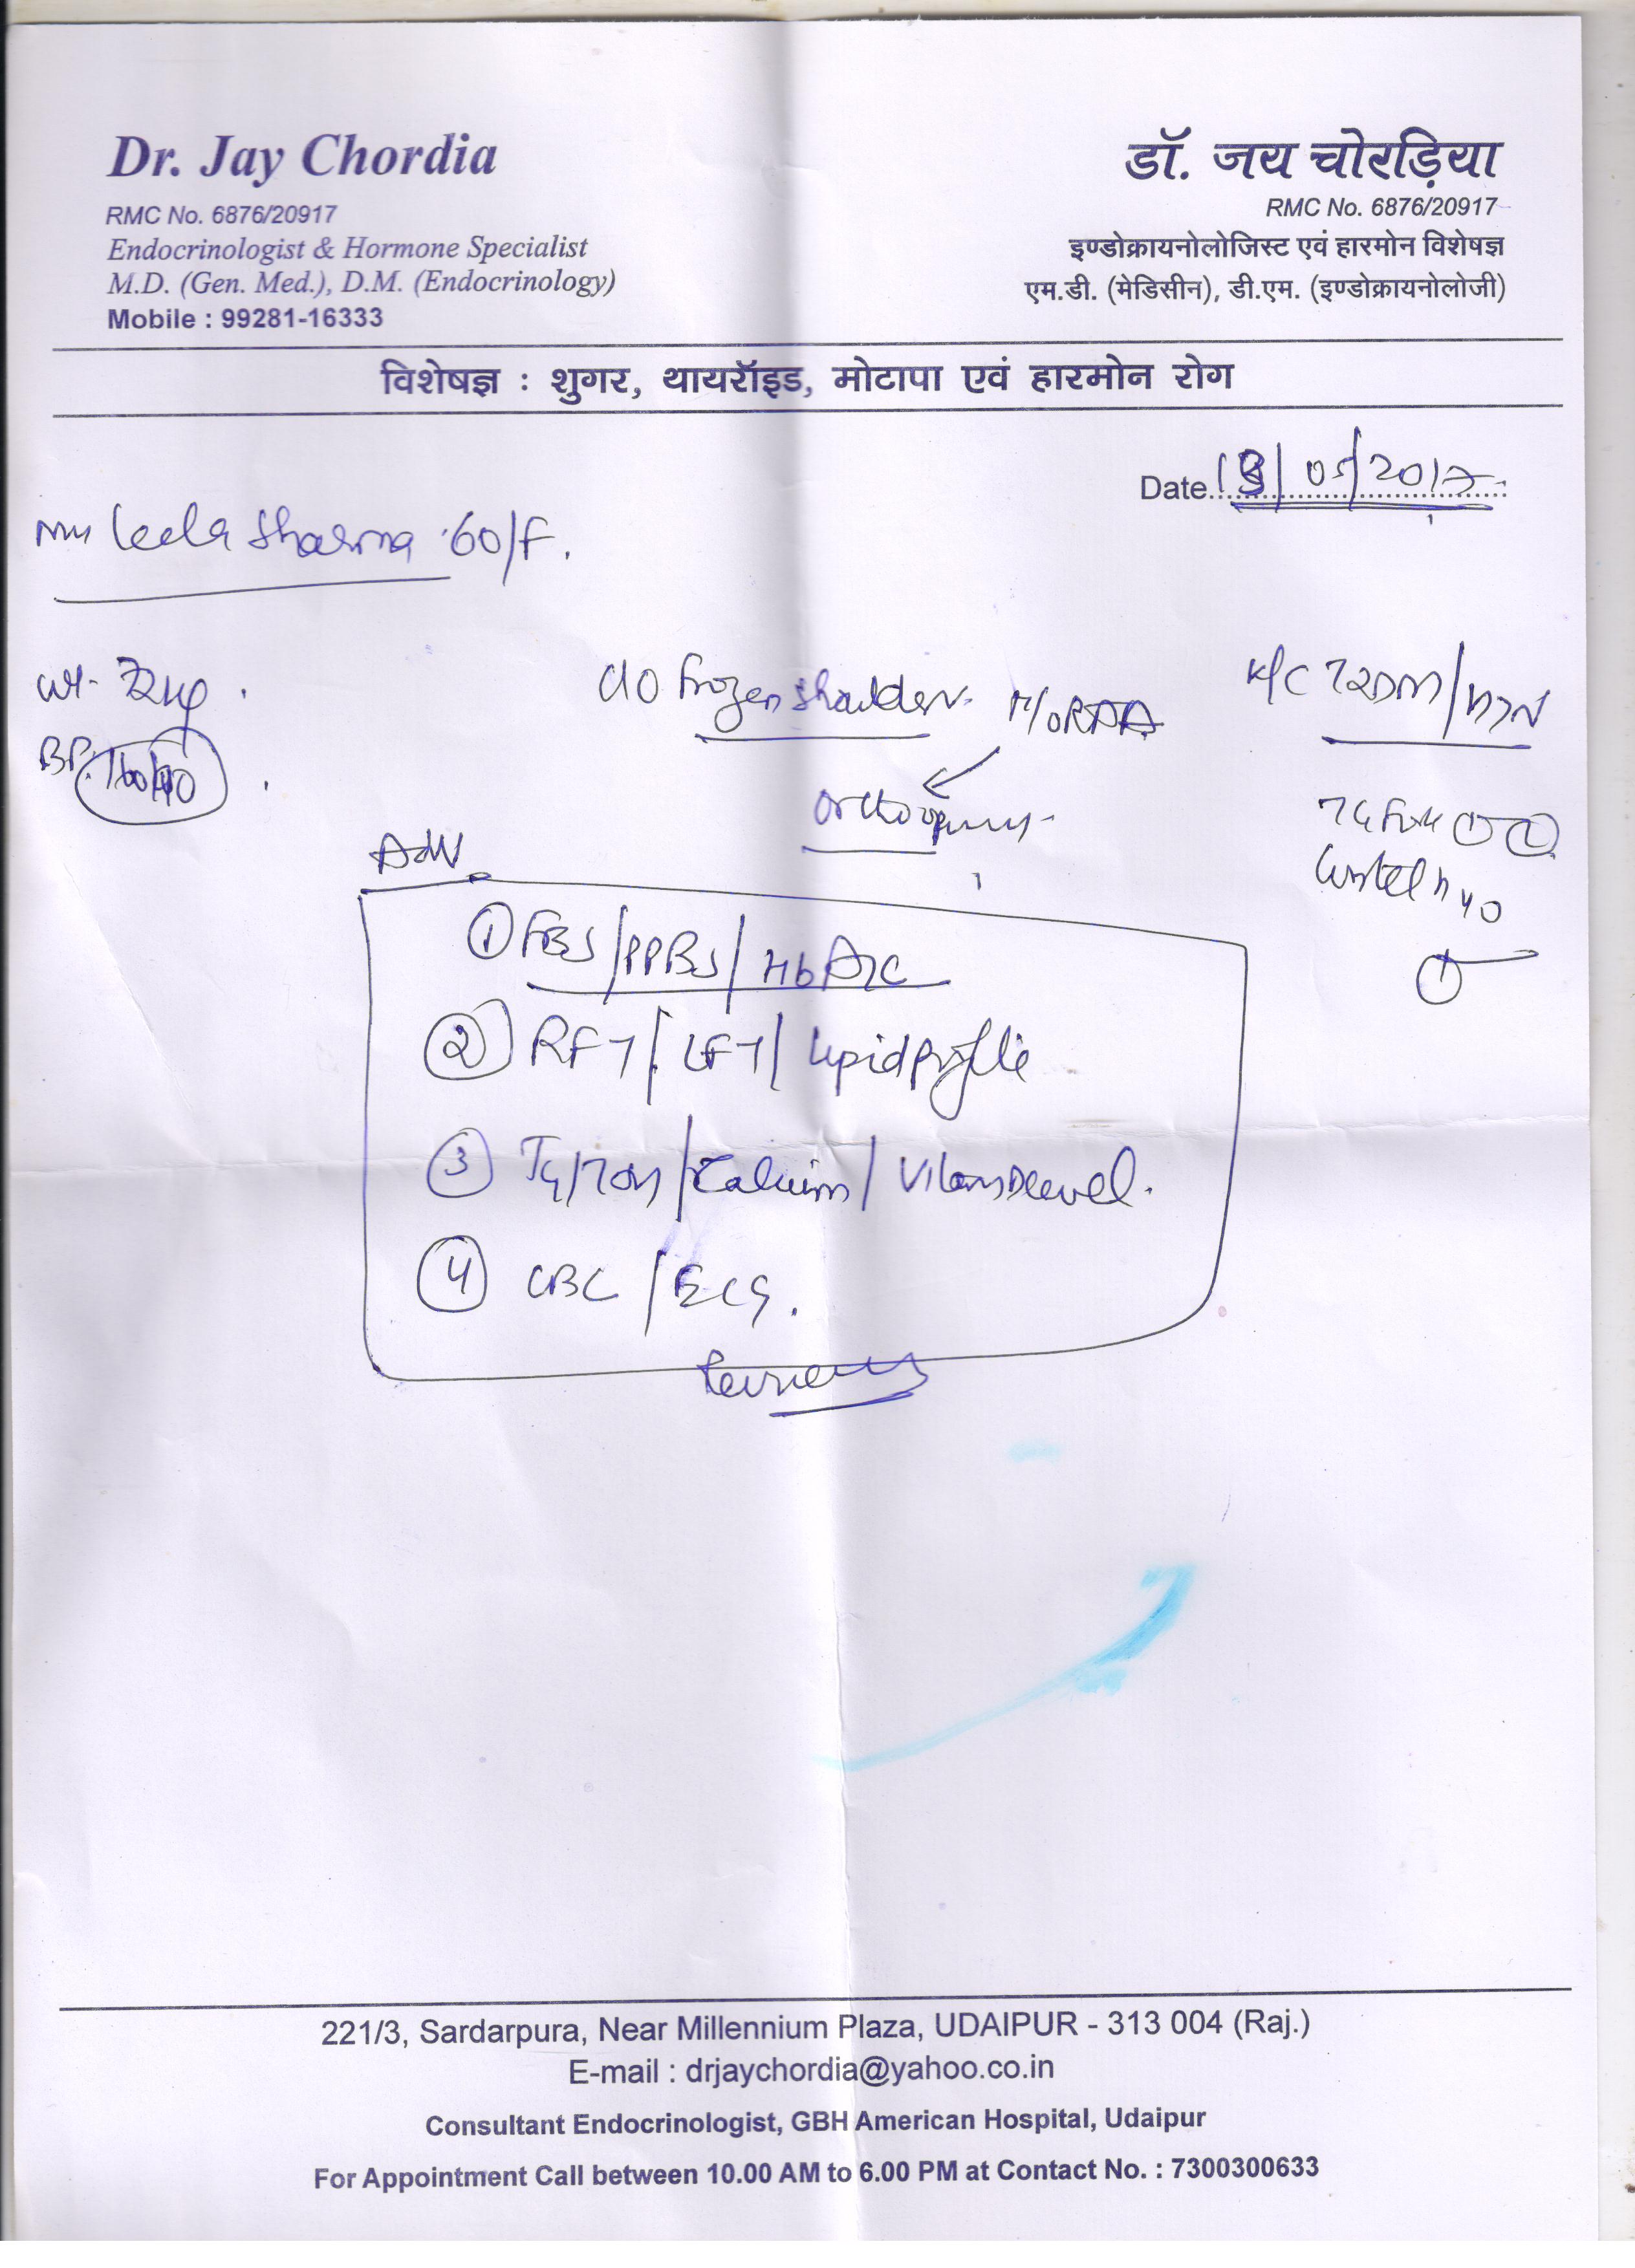 Dr. Jay Chordia
RMC No. 6876/20917
Endocrinologist & Hormone Specialist
M.D. (Gen. Med.), D.M. (Endocrinology)
Mobile : 99281-16333
डॉ. जय चोरड़िया
RMC No. 6876/20917
इण्डोक्रायनोलोजिस्ट एवं हारमोन विशेषज्ञ
एम.डी. (मेडिसीन), डी.एम. (इण्डोक्रायनोलोजी)
विशेषज्ञ : शुगर, थायरॉइड, मोटापा एवं हारमोन रोग
Date 18/05/2017
Leela Sharma 60/F.
Wt- 72kg.
BP:
C/O Frozen Shoulder.
K/C T2DM/HTN
Adv
① FBS/PPBS/HbA1C
② RFT/LFT/Lipid profile
③ T4/TSH/Calcium/VitaminD level.
④ CBC/ECG.
Review
221/3, Sardarpura, Near Millennium Plaza, UDAIPUR - 313 004 (Raj.)
E-mail : drjaychordia@yahoo.co.in
Consultant Endocrinologist, GBH American Hospital, Udaipur
For Appointment Call between 10.00 AM to 6.00 PM at Contact No. : 7300300633